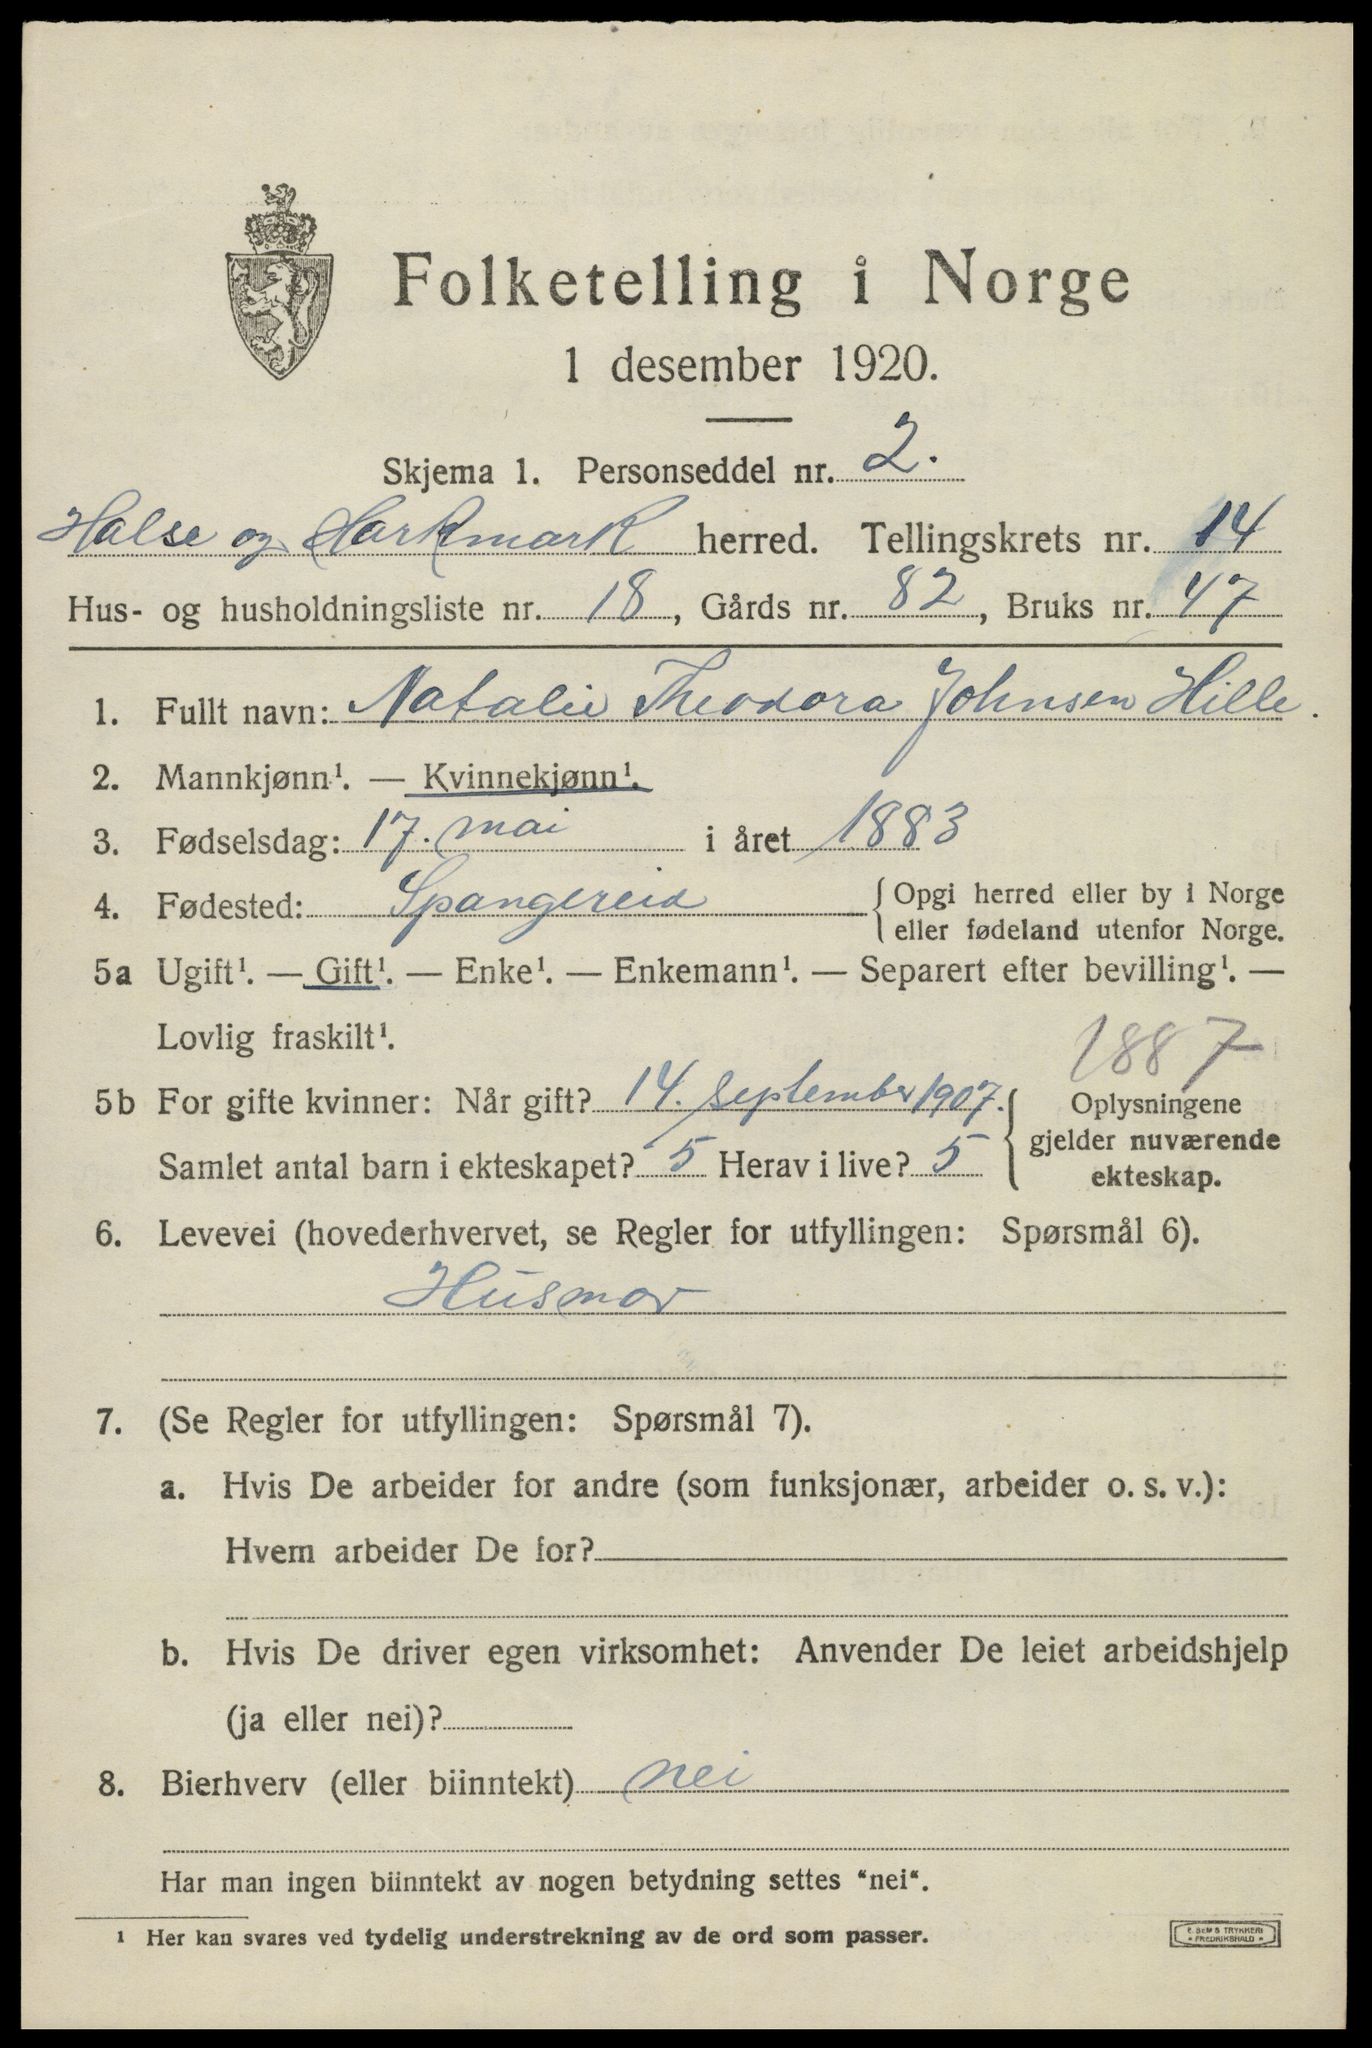 Folketelling i Norge
1 desember 1920.
Skjema 1. Personseddel nr. 2.
Halse og Harkmark herred. Tellingskrets nr. 14
Hus- og husholdningsliste nr. 18, Gårds nr. 82, Bruks nr. 47
1. Fullt navn: Natalie Theodora Johnsen Hille.
2. Mannkjønn¹. — Kvinnekjønn¹.
3. Fødselsdag: 17. mai i året 1883
4. Fødested: Spangereid { Opgi herred eller by i Norge
eller fødeland utenfor Norge.
5a Ugift¹. — Gift¹. — Enke¹. — Enkemann¹. — Separert efter bevilling¹. —
Lovlig fraskilt¹.
1887
5b For gifte kvinner: Når gift? 14. september 1907. { Oplysningene
gjelder nuværende
Samlet antal barn i ekteskapet? 5 Herav i live? 5
ekteskap.
6. Levevei (hovederhvervet, se Regler for utfyllingen: Spørsmål 6).
Husmor
7. (Se Regler for utfyllingen: Spørsmål 7).
a. Hvis De arbeider for andre (som funksjonær, arbeider o. s. v.):
Hvem arbeider De for?
b. Hvis De driver egen virksomhet: Anvender De leiet arbeidshjelp
(ja eller nei)?
8. Bierhverv (eller biinntekt) nei
Har man ingen biinntekt av nogen betydning settes "nei".
¹ Her kan svares ved tydelig understrekning av de ord som passer.
E. SEM'S TRYKKERI
FREDRIKSHALD